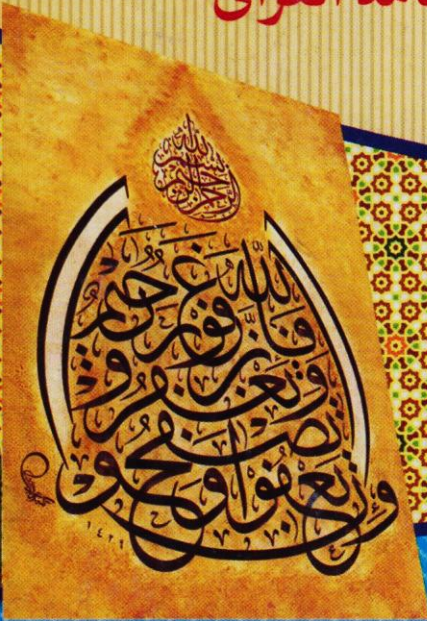 بسم الله الرحمن الرحيم
وَإِن تَعْفُوا وَتَصْفَحُوا وَتَغْفِرُوا فَإِنَّ اللَّهَ غَفُورٌ رَّحِيمٌ
١٤٢٩